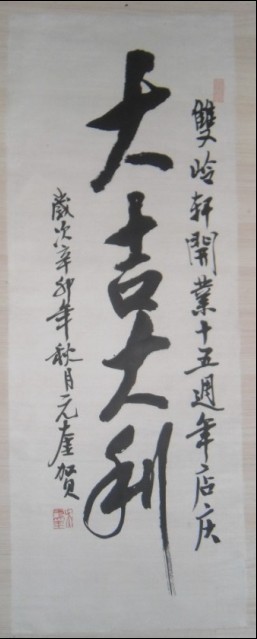 雙岭軒開業十五週年店庆
大吉大利
歲次辛卯年秋月元奎賀